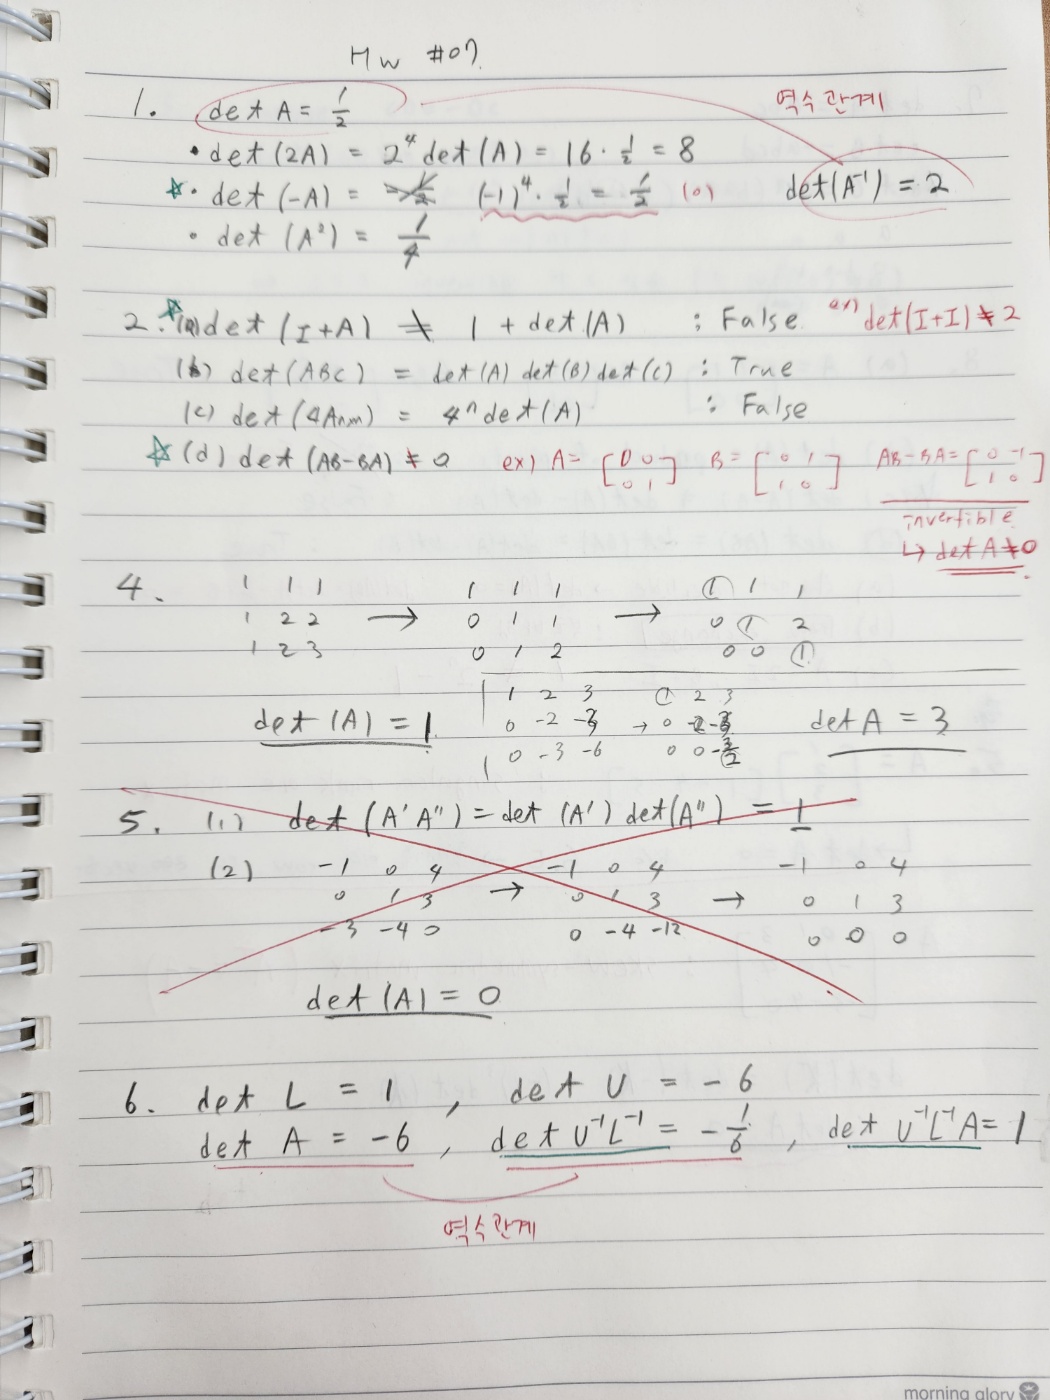 HW #07.
1. det A = 1/2 역수관계
• det (2A) = 2⁴ det (A) = 16 · 1/2 = 8
☆ • det (-A) = (-1)⁴ · 1/2 = 1/2 (0) det(A⁻¹) = 2
• det (A²) = 1/4
2. ☆ (a) det (I+A) ≠ 1 + det (A) : False ex) det(I+I) ≠ 2
(b) det (ABC) = det(A) det(B) det(C) : True
(c) det (4Anm) = 4ⁿ det (A) : False
☆ (d) det (AB-BA) ≠ 0 ex) A = [0 0 B = [0 1 AB-BA = [0 -1
0 1] 1 0] 1 0]
invertible
↳ det A ≠ 0.
4. 1 1 1 1 1 1 1 1 1
1 2 2 → 0 1 1 → 0 1 2
1 2 3 0 1 2 0 0 1
1 2 3 1 2 3
det (A) = 1 0 -2 -3 → 0 -2 -3 det A = 3
0 -3 -6 0 0 -3/2
5. (1) det (A'A'') = det (A') det(A'') = 1
(2) -1 0 4 -1 0 4 -1 0 4
0 1 3 → 0 1 3 → 0 1 3
-3 -4 0 0 -4 -12 0 0 0
det (A) = 0
6. det L = 1 , det U = -6
det A = -6 , det U⁻¹L⁻¹ = -1/6 , det U⁻¹L⁻¹A = 1
역수관계
morning glory